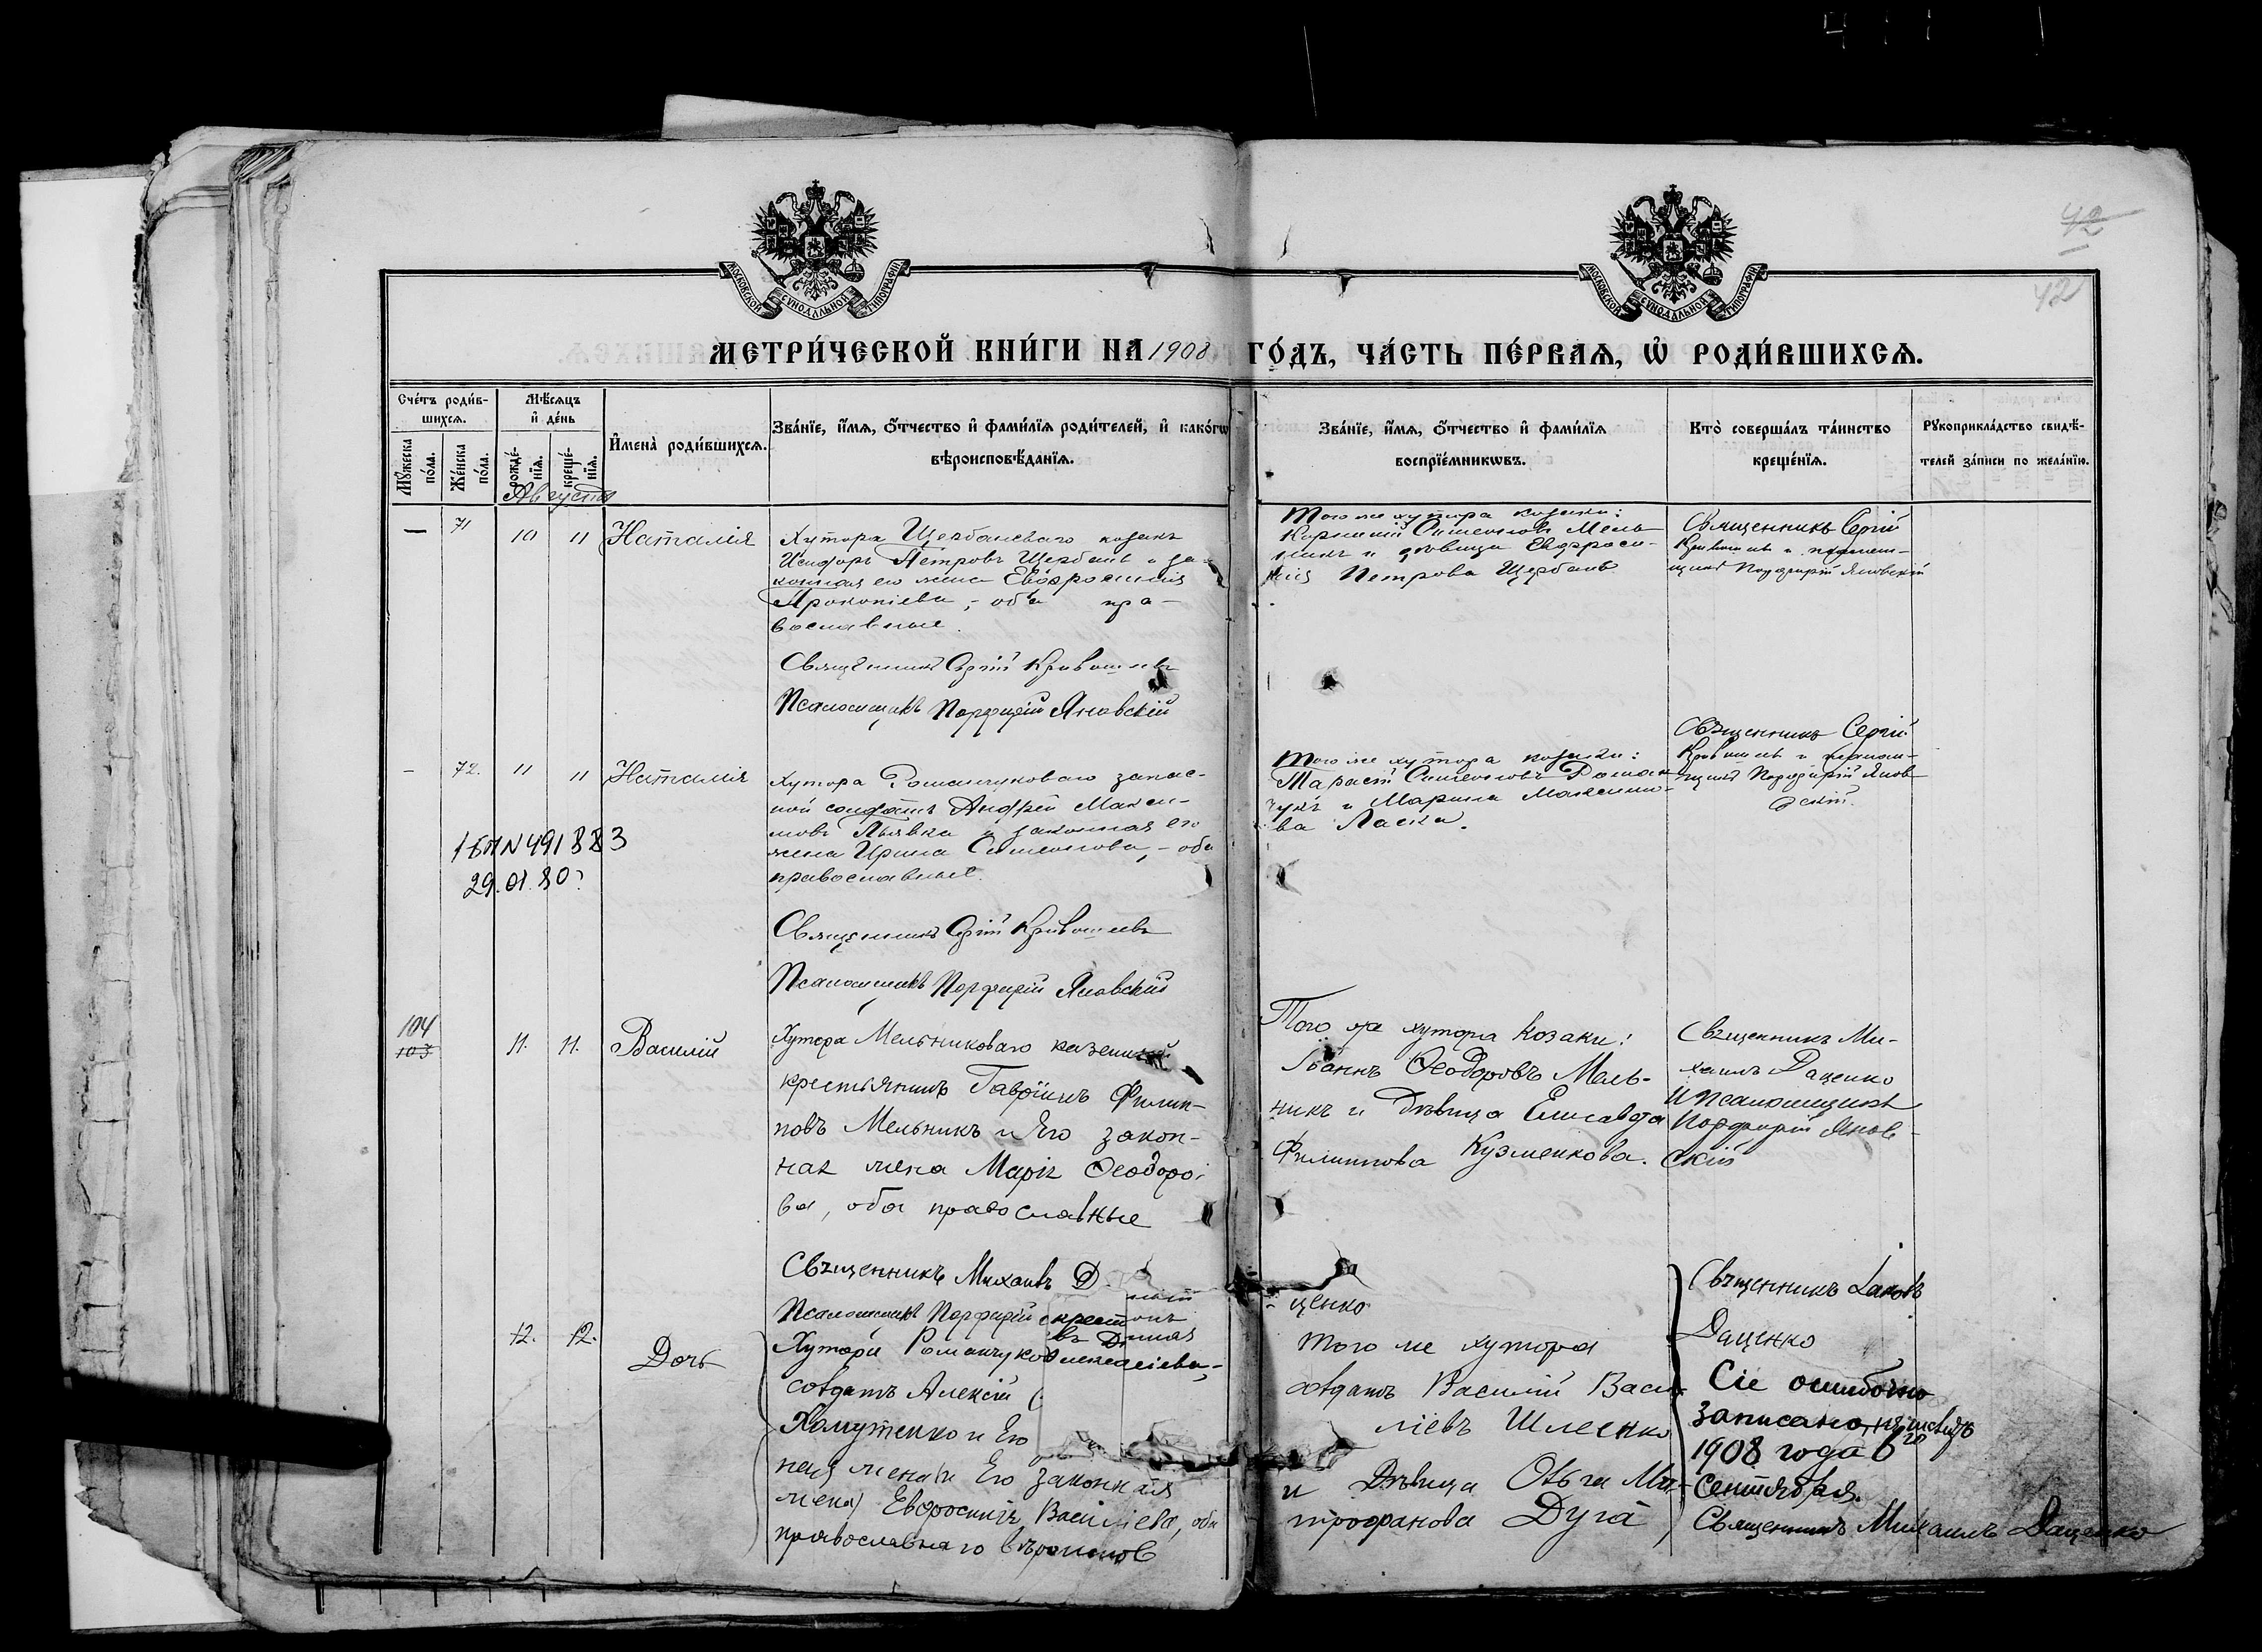 42
42
МОСКОВСКОЙ СѴНОДАЛЬНОЙ ТИПОГРАФІИ
МОСКОВСКОЙ СѴНОДАЛЬНОЙ ТИПОГРАФІИ
МЕТРИ́ЧЕСКОЙ КНИ́ГИ НА 1908 ГО́ДЪ, ЧА́СТЬ ПЕ́РВАѦ, Ѡ҆ РОДИ́ВШИХСѦ.
Сче́тъ роди́в-
шихсѧ.
Мꙋ́жеска
по́ла.
Же́нска
по́ла.
Мѣ́сѧцъ
и҆ де́нь
рожде́-
нїѧ.
креще́-
нїѧ.
Августа
И҆мена̀ роди́вшихсѧ.
Зва́нїе, и҆́мѧ, ѻ҆́тчество и҆ фами́лїѧ роди́телей, и҆ како́гѡ
вѣроисповѣ́данїѧ.
Зва́нїе, и҆́мѧ, ѻ҆́тчество и҆ фами́лїѧ
воспрїе́мникѡвъ.
Кто̀ соверша́лъ та́инство
креще́нїѧ.
Рꙋкоприкла́дство свидѣ́-
телей за́писи по жела́нїю.
— 71 10 11 Наталія
Хутора Щербанскаго козакъ
Исидоръ Петровъ Щербань и за-
конная его жена Евфросинія
Прокопіева, - оба пра-
вославные.
Священникъ Сергій Кривошеевъ
Псаломщикъ Порфирій Яновскій
Того же хутора козаки:
Корнилій Симеоновъ Мель-
никъ и девица Евфроси-
нія Петрова Щербань
Священникъ Сергій
Кривошеевъ и псалом-
щикъ Порфирій Яновскій
- 72. 11 11 Наталія
N 491883
29.01.80
Хутора Романчуковаго запас-
ной солдатъ Андрей Макси-
мовъ Пьявка и законная его
жена Ирина Симеонова, - оба
православные.
Священникъ Сергій Кривошеевъ
Псаломщикъ Порфирій Яновскій
Того же хутора козаки:
Тарасій Симеоновъ Роман-
чукъ и Марина Максимо-
ва Ласка.
Священникъ Сергій
Кривошеевъ и псалом-
щикъ Порфирій Янов-
скій.
104
103
11. 11. Василій
Хутора Мельниковаго казенный
крестьянинъ Гавріилъ Филип-
повъ Мельникъ и Его закон-
ная жена Марія Ѳеодоро-
ва, оба православные
Священникъ Михаилъ Д
Псаломщикъ Порфирій
Того же хутора Козаки:
Іоаннъ Ѳеодоровъ Мель-
никъ и Дѣвица Елисавета
Филиппова Кузменкова.
Священникъ Ми-
хаилъ Даценко
и псаломщикъ
Порфирій Янов-
скій
ценко
12. 12. Дочь
Хутора Романчуков
солдатъ Алексій
Хомутенко и Его
ная жена (и Его законная
жена) Евфросинія Василіева, оба
православнаго вѣроиспов
Того же хутора
солдатъ Василій Васи-
ліевъ Шленко
и Дѣвица Ольга Ми-
трофанова Дуга
Священникъ Іаковъ
Даценко
Сіе ошибочно
записано,
1908 года 6го
Сентября.
Священникъ Михаилъ Даценко